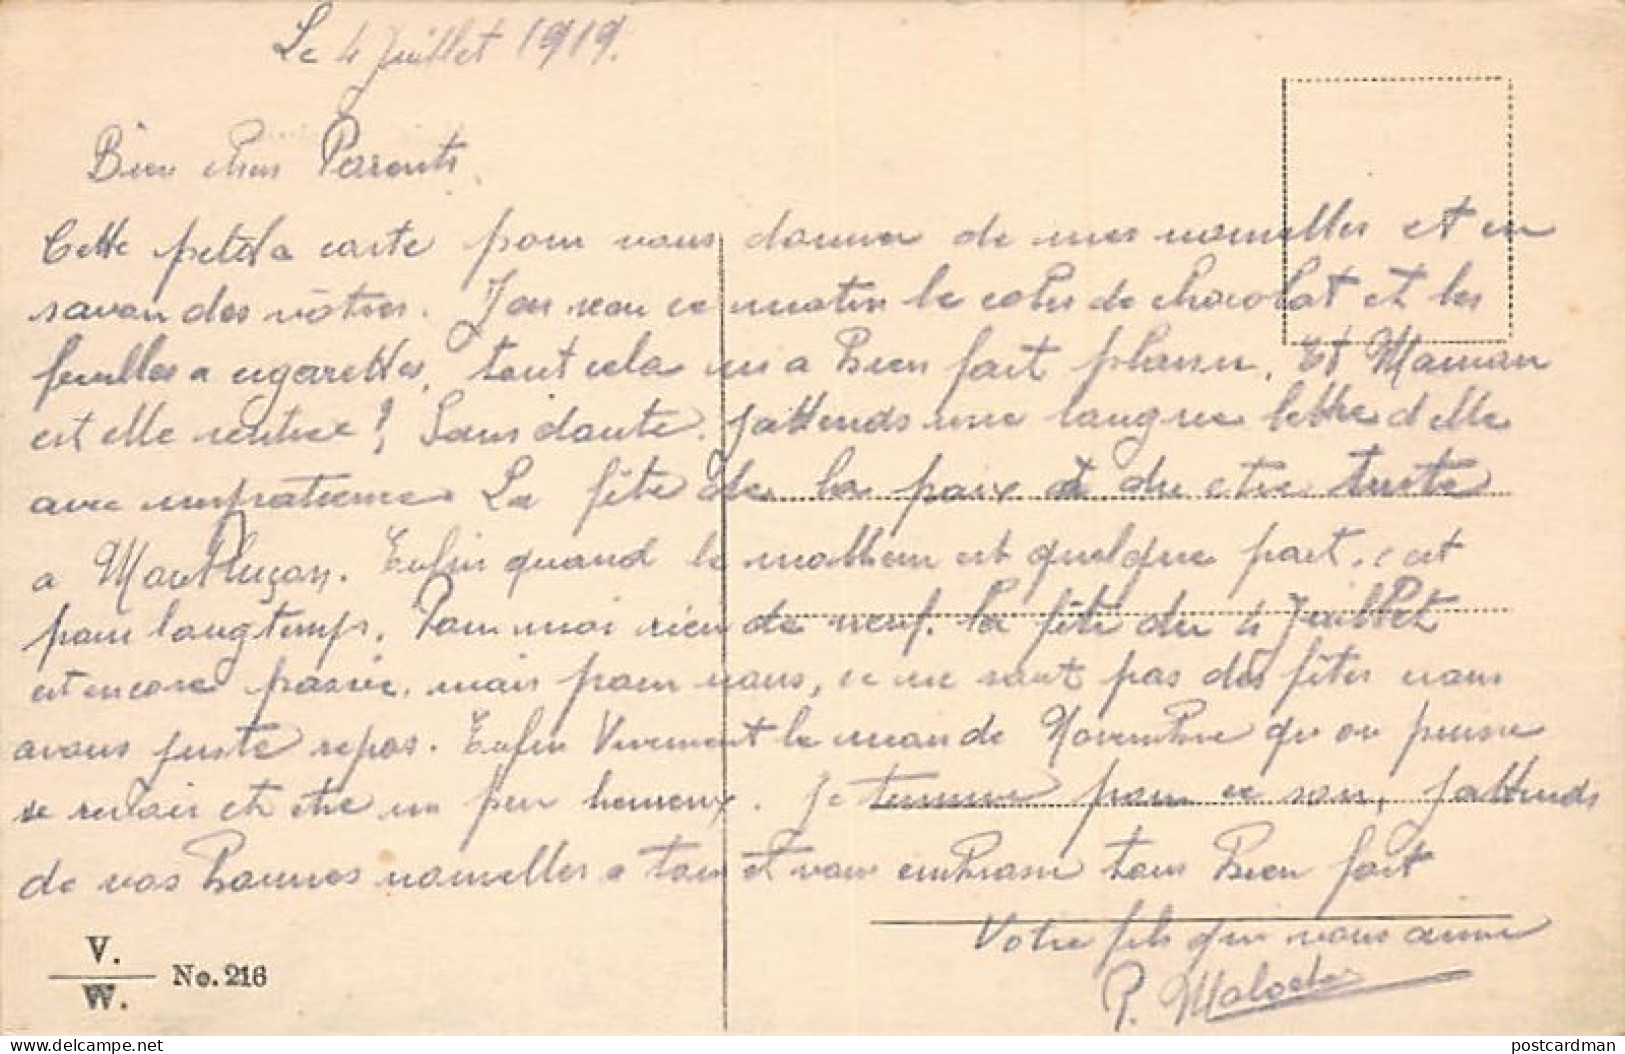 Le 4 Juillet 1919.
Bien chers Parents
Cette petite carte pour vous donner de mes nouvelles et en
savoir des vôtres. J'ai reçu ce matin le colis de chocolat et les
feuilles a cigarettes, tout cela m'a bien fait plaisir. Et Maman
est elle rentree? Sans doute. J'attends une longue lettre d'elle
avec impatience. La fête de la paix a du etre triste
a Montluçon. Enfin quand le malheur est quelque part, c'est
pour longtemps. Pour moi rien de neuf. La fête du 4 Juillet
est encore passée, mais pour nous, ce ne sont pas des fêtes nous
avons juste repos. Enfin Vivement le mois de Novembre qu'on puisse
se revoir et etre un peu heureux. Je termine pour ce soir, j'attends
de vos bonnes nouvelles a tous et vous embrasse tous bien fort
Votre fils qui vous aime
P.
V.
W. No. 216
postcardman